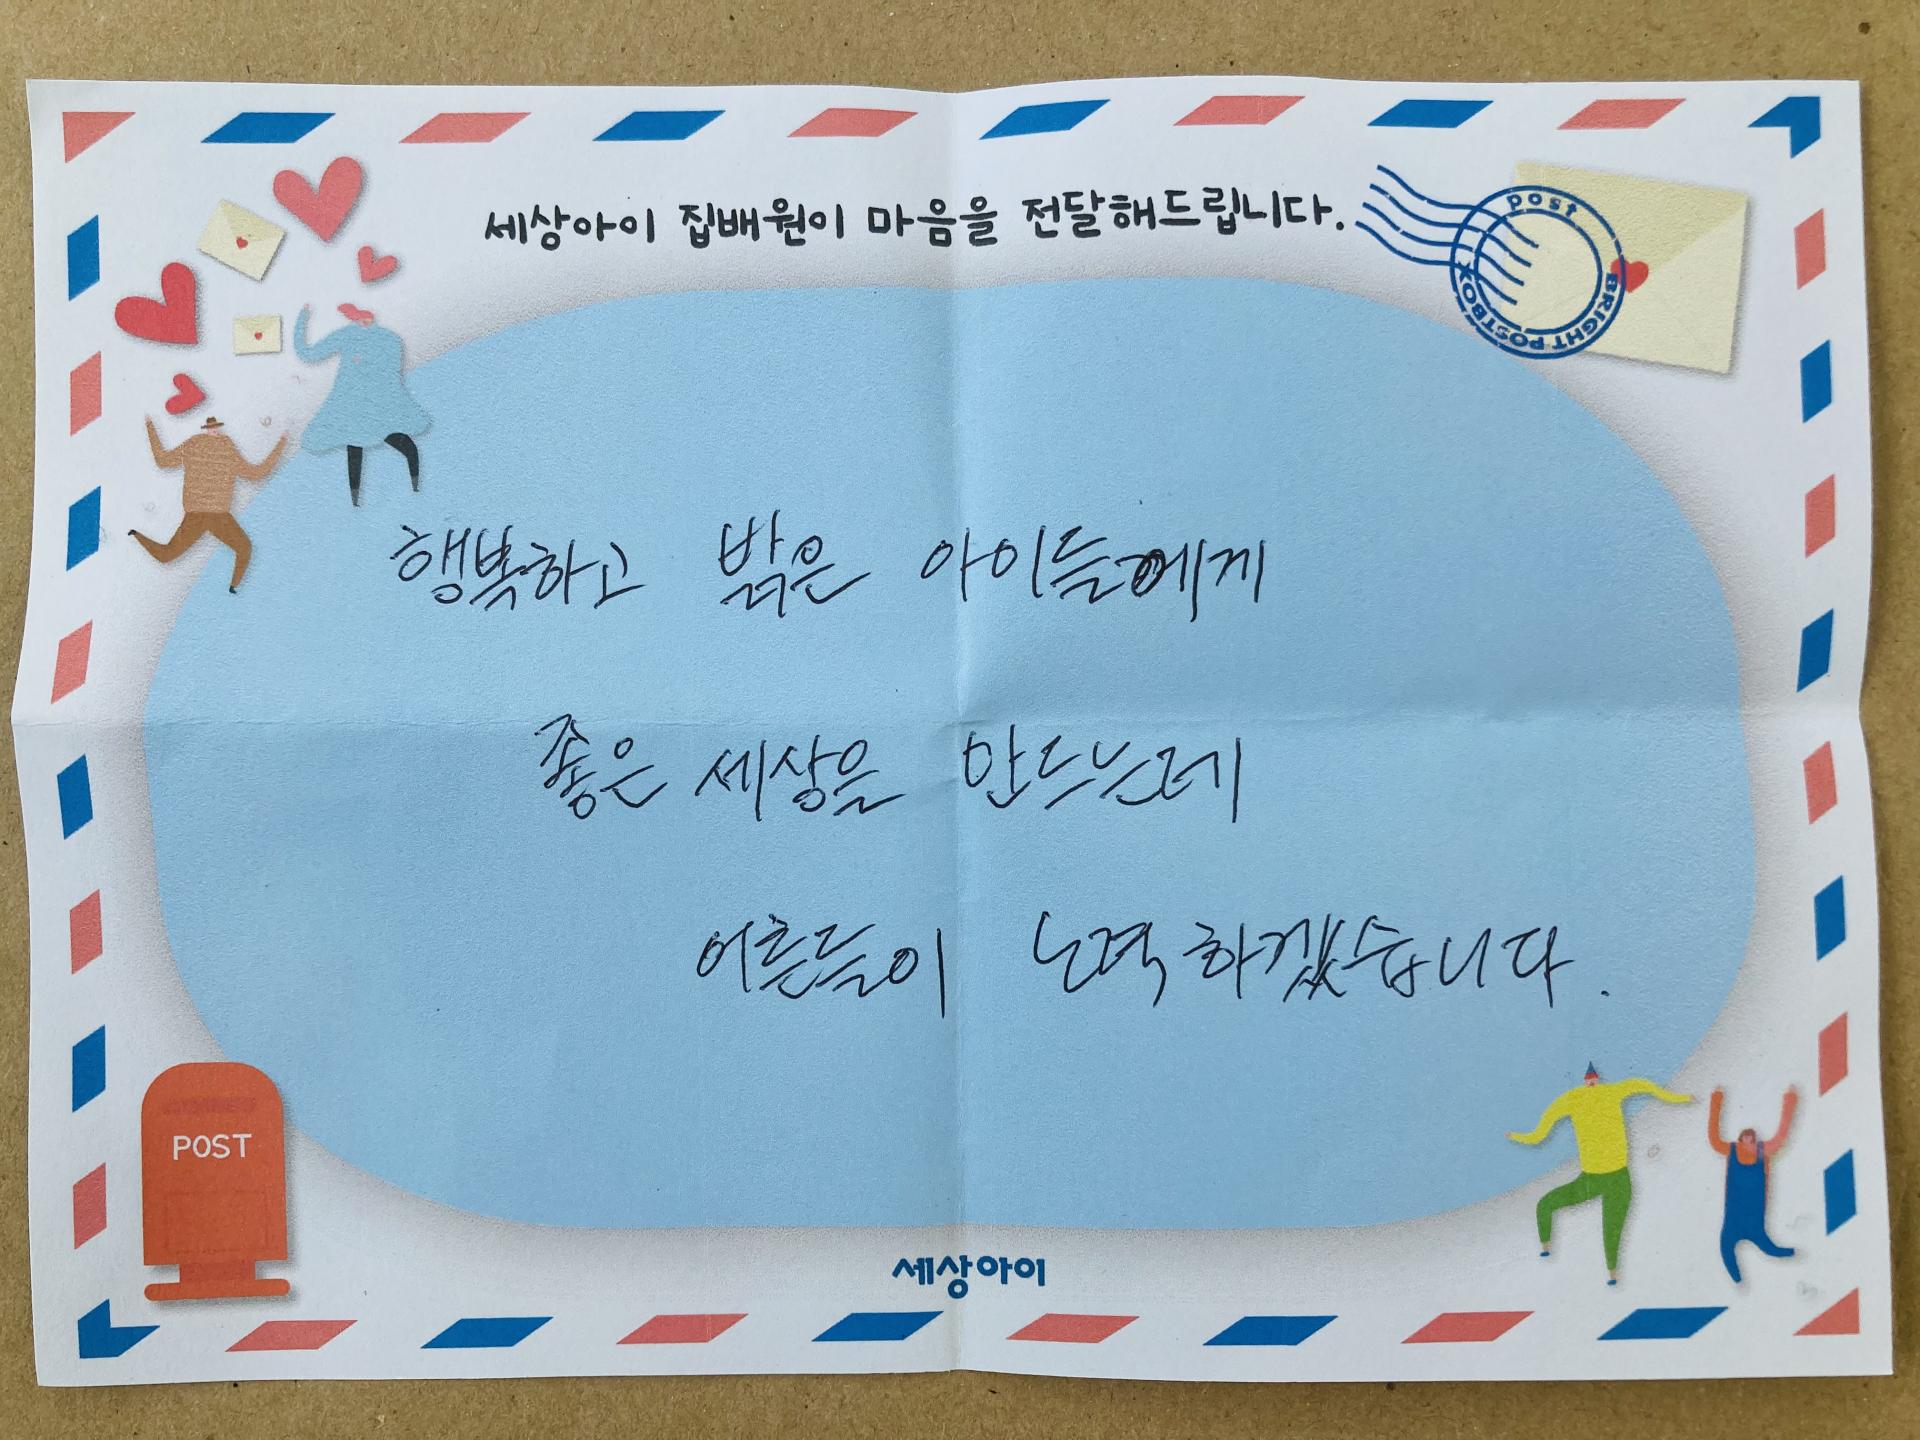 세상아이 집배원이 마음을 전달해드립니다.
post
BRIGHT POSTBOX
행복하고 밝은 아이들에게
좋은 세상을 만드는데
어른들이 노력하겠습니다.
POST
세상아이